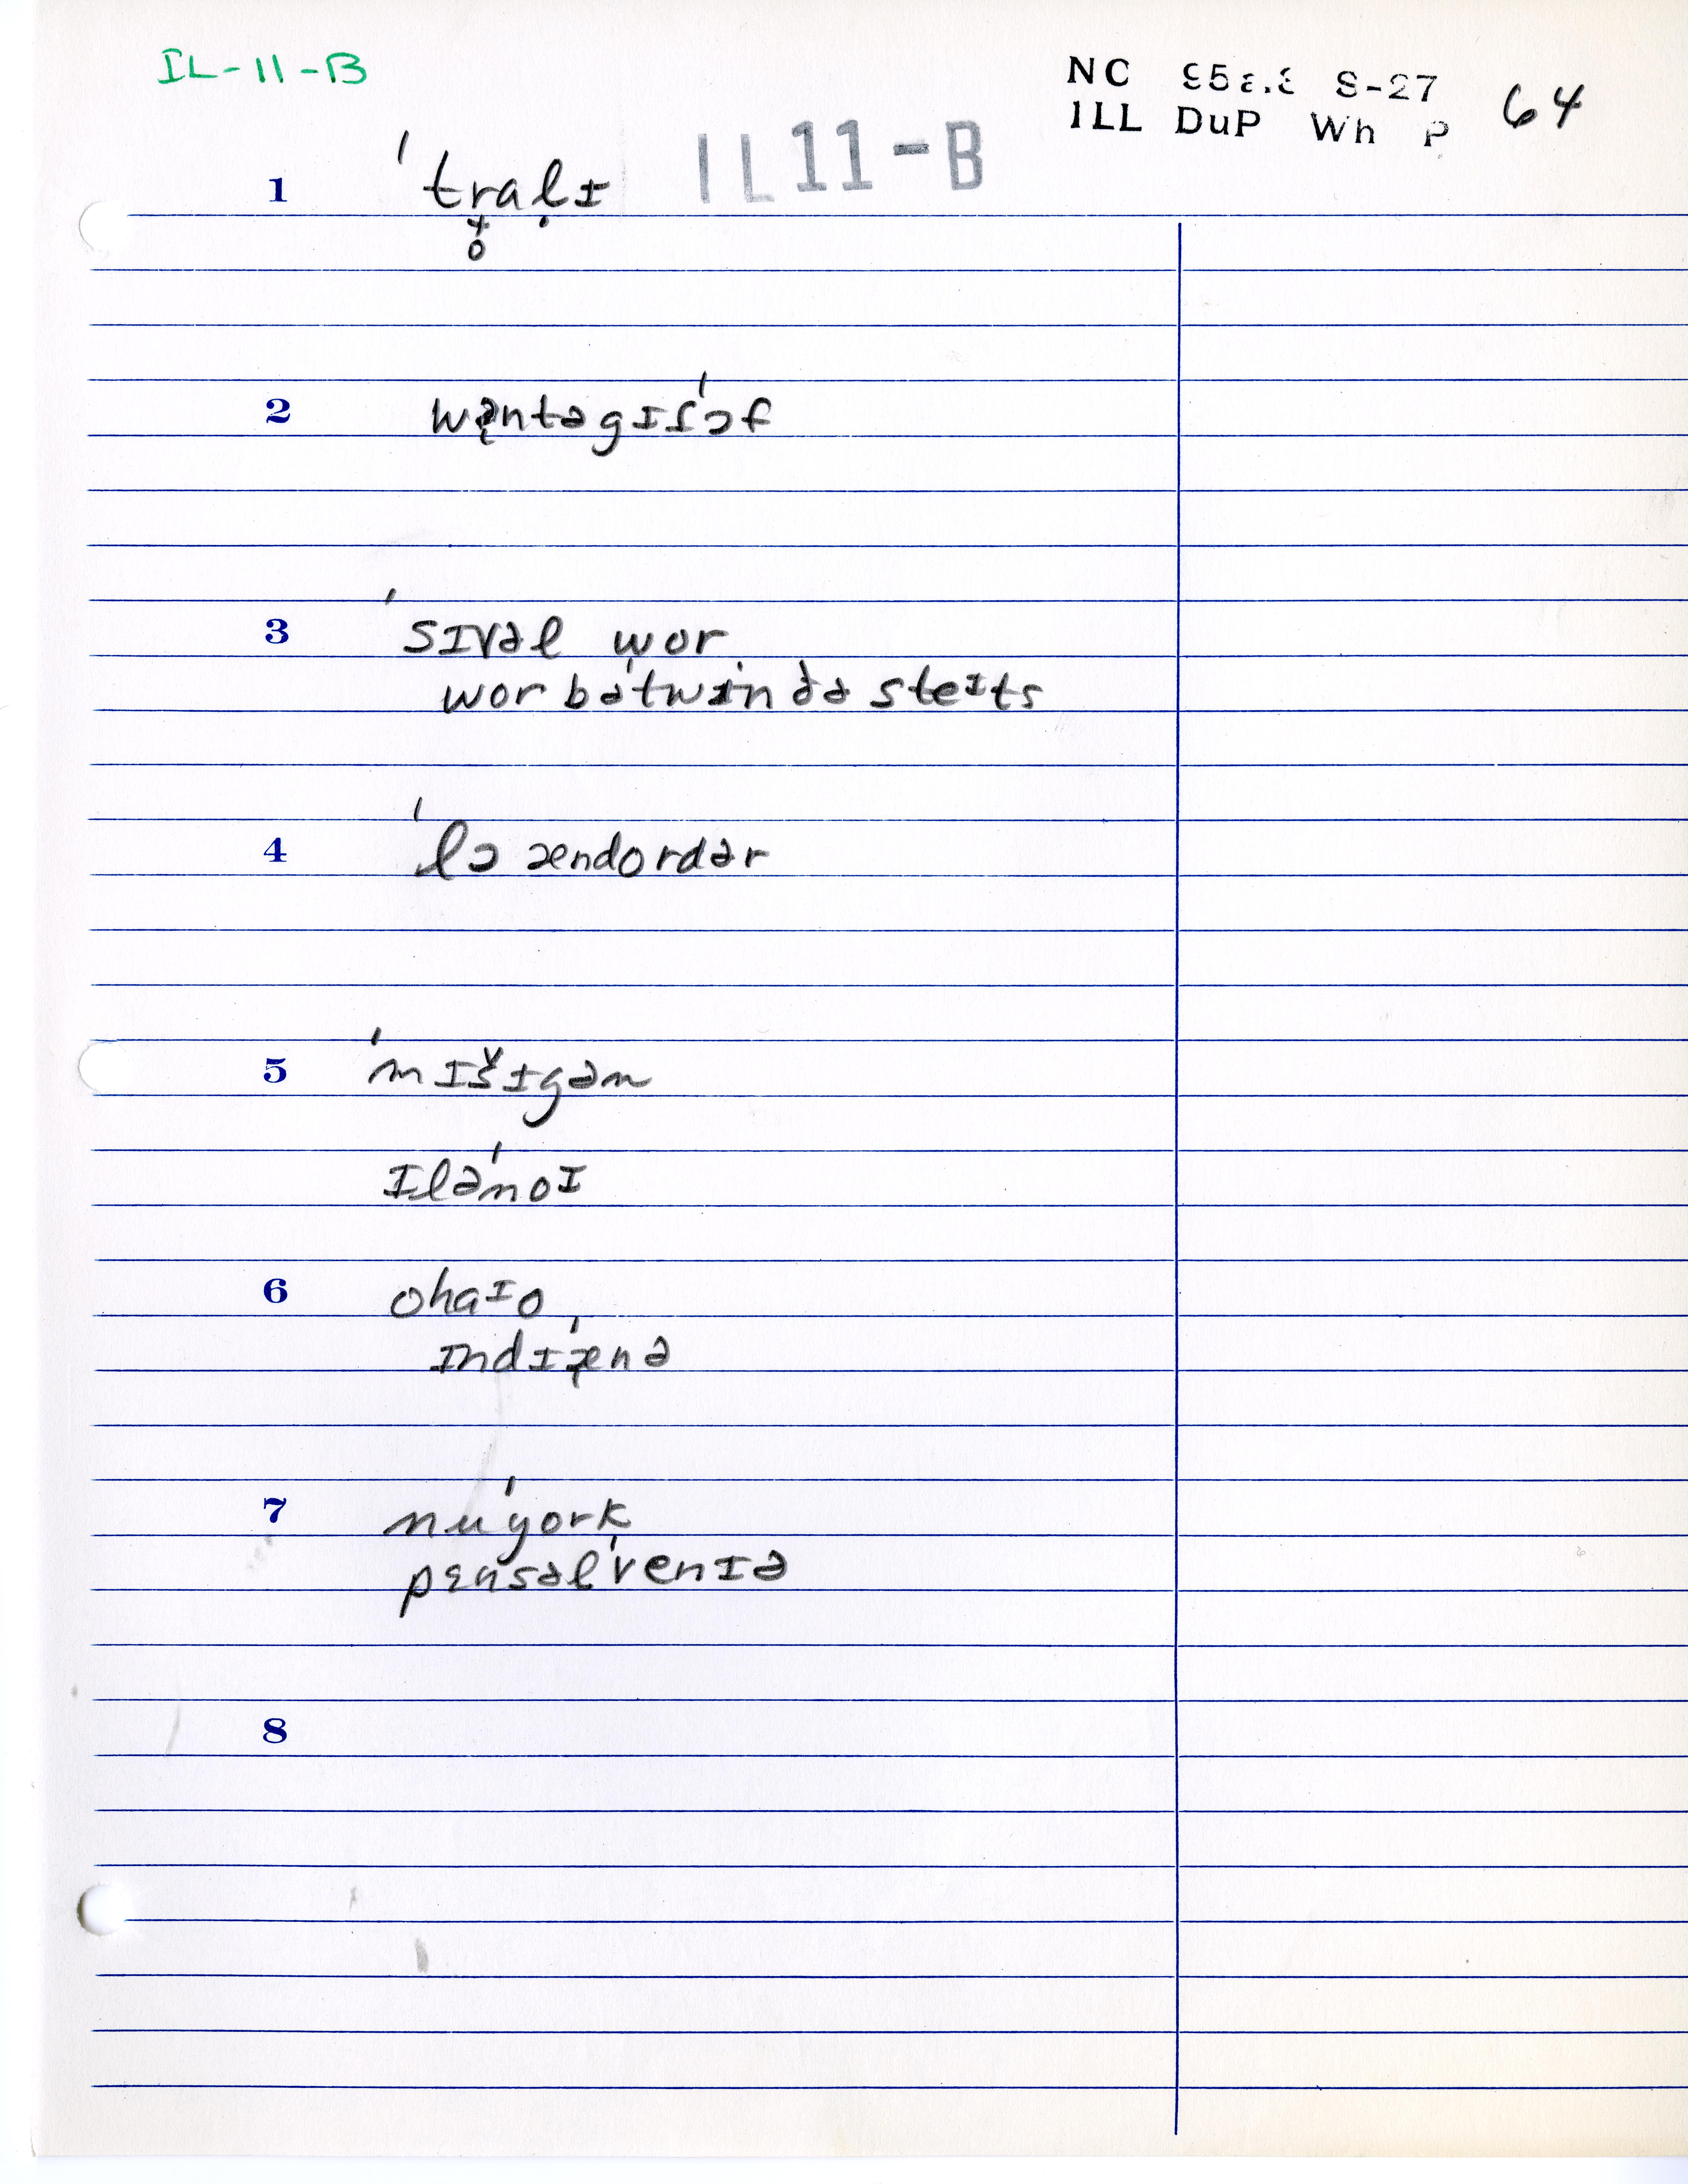 IL-11-B
NC 958.8 S-27 64
ILL DuP Wh P
IL 11-B
1 ˈtrḁḷɪ
2 wəntə gɪt ˈɔf
3 ˈsɪvəl wor
wor bəˈtwin ðə steɪts
4 ˈlɔ ændordər
5 ˈmɪšɪgən
ɪləˈnoɪ
6 ohaɪo
ɪndɪˈænə
7 nuˈyork
pɛnsəlˈvenɪə
8